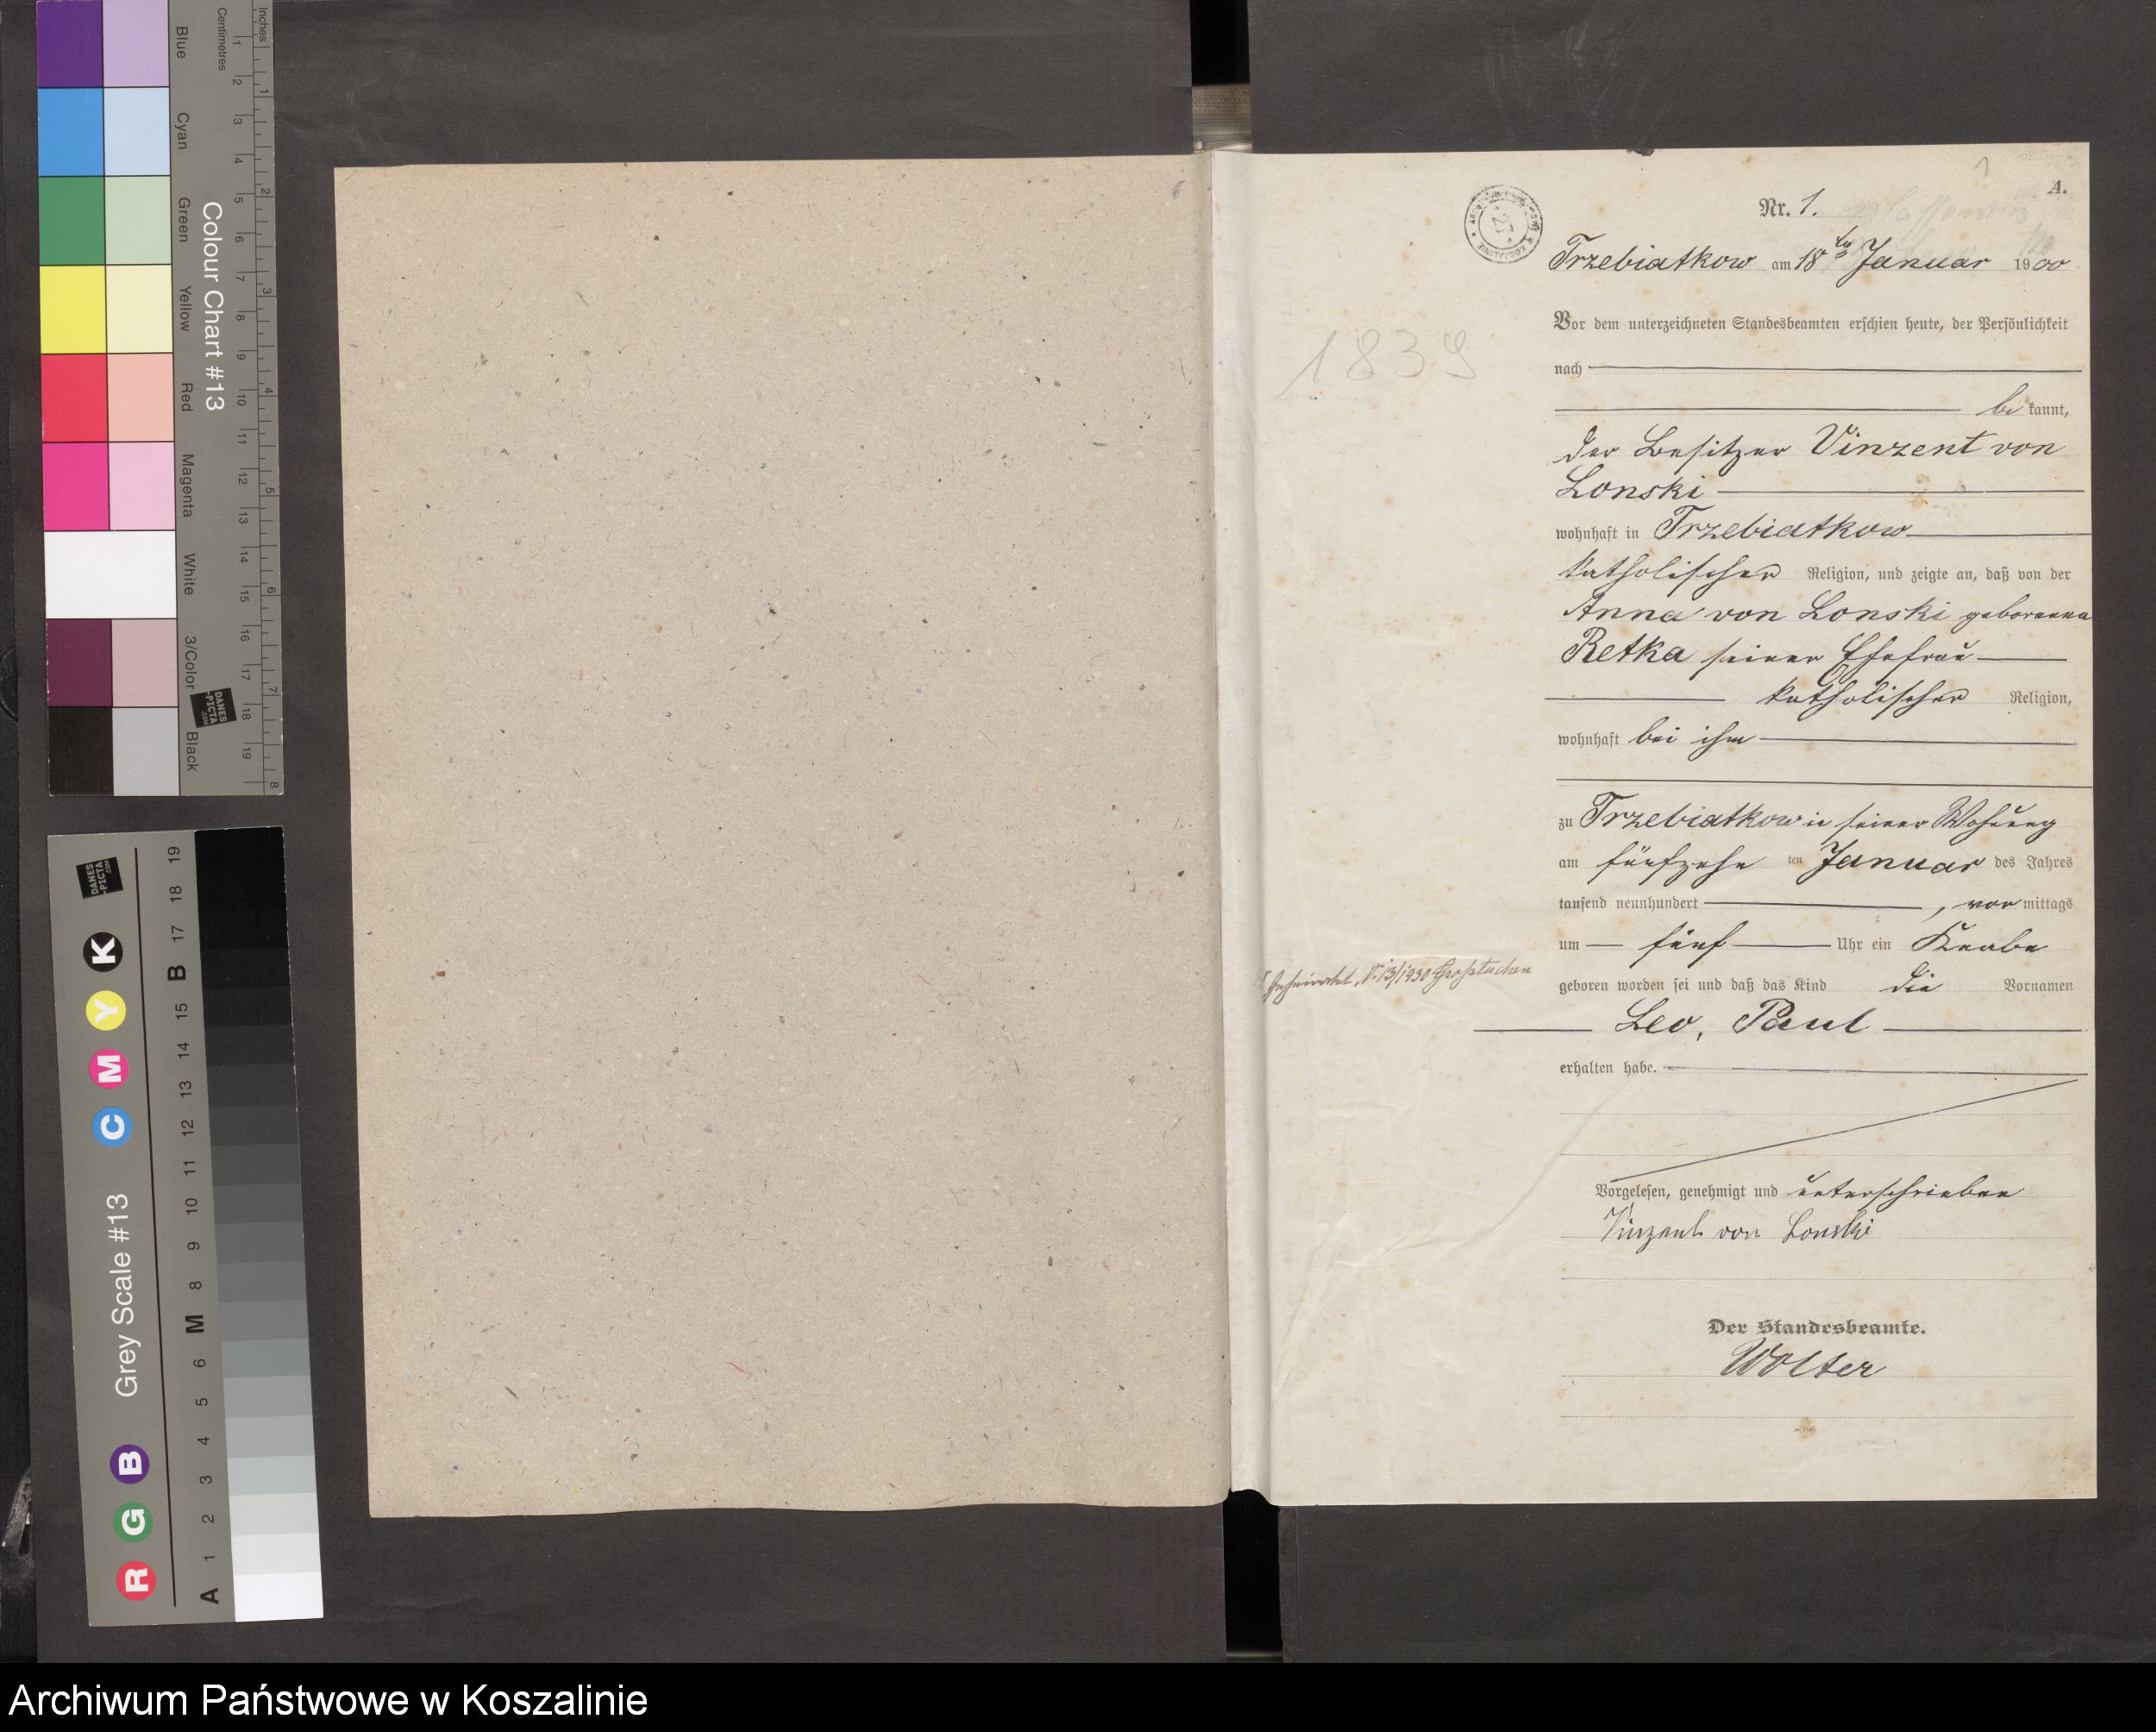 Inches
Centimetres
Colour Chart #13
Blue
Cyan
Green
Yellow
Red
Magenta
White
3/Color
Black
1 2 3 4 5 6 7 8 9 10 11 12 13 14 15 16 17 18 19
1 2 3 4 5 6 7 8
DANES
-PICTA
.COM
Grey Scale #13
R G B C M Y K
A 1 2 3 4 5 6 M 8 9 10 11 12 13 14 15 B 17 18 19
DANES
-PICTA
.COM
1
A.
Nr. 1.
27
Trzebiatkow am 18 ten Januar 1900
1839
Vor dem unterzeichneten Standesbeamten erschien heute, der Persönlichkeit
nach
be kannt,
der Besitzer Vinzent von
Lonski
wohnhaft in Trzebiatkow
katholischer Religion, und zeigte an, daß von der
Anna von Lonski geborenen
Retka seiner Ehefrau
katholischer Religion,
wohnhaft bei ihm
zu Trzebiatkow in seiner Wohnung
am fünfzehn ten Januar des Jahres
tausend neunhundert , vor mittags
um fünf Uhr ein Knabe
Geheiratet Nr. 13/1930 Großtuchen
geboren worden sei und daß das Kind die Vornamen
Leo, Paul
erhalten habe.
Vorgelesen, genehmigt und unterschrieben
Vinzent von Lonski
Der Standesbeamte.
Wolter
Archiwum Państwowe w Koszalinie